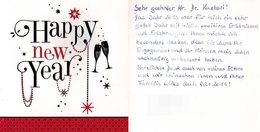 Happy
new
Year
Sehr geehrter Hr. Dr. Kushari!
Das Jahr 2015 war für mich ein sehr
gutes Jahr mit viele positive Erlebnisse
und Erfahrungen. Ihnen möchte ich
besonders danken, dass Sie durch Ihr
Engagement und Ihr Können mein Leben
nachhaltig verbessert haben.
Herzlichen Dank auch von meinen Eltern
und wir wünschen Ihnen und Ihrer
Familie alles Gute für 2016!